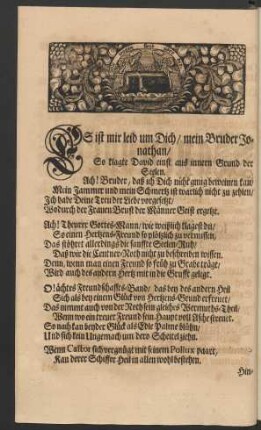 ES ist mir leid um Dich/ mein Bruder Jo-
nathan/
So klagte David einst aus innern Grund der
Seelen.
Ach! Bruder/ daß ich Dich nicht gnug beweinen kan/
Mein Jammer und mein Schmertz ist warlich nicht zu zehlen/
Ich habe Deine Treu der Liebe vorgesetzt/
Wodurch der Frauen Brust der Männer Geist ergetzt.
Ach! Theurer Gottes-Mann/ wie weißlich klagest du/
So einen Hertzens-Freund so plötzlich zu vermissen/
Das stöhret allerdings die sanffte Seelen-Ruh/
Daß wir die Centner-Noth nicht zu beschreiben wissen.
Denn/ wenn man einen Freund so früh zu Grabe trägt/
Wird auch des andern Hertz mit in die Grufft gelegt.
O! ächtes Freundschaffts-Band/ das bey des andern Heil
Sich als bey einem Glück von Hertzens-Grund erfreuet/
Das nimmt auch von der Noth sein gleiches Wermuths-Theil/
Wenn wo ein treuer Freund sein Haupt voll Asche streuet.
So nach kan beyder Glück als Edle Palme blühn/
Und sich kein Ungemach um dero Scheitel ziehn.
Wenn Castor sich vergnügt mit seinem Pollux paart,
Kan derer Schiffer Heil in allen wohl bestehen.
Hin-